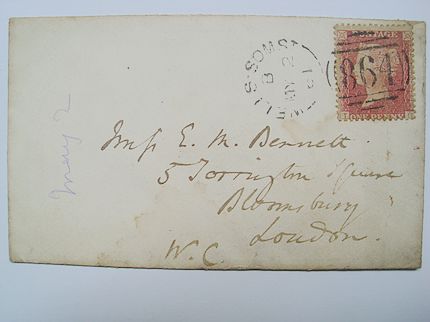 WELLS-SOMST
B
MY 2
61
POSTAGE
864
ONE PENNY
May 2
Miss E. M. Bennett
5 Torrington Square
Bloomsbury
London.
W.C.